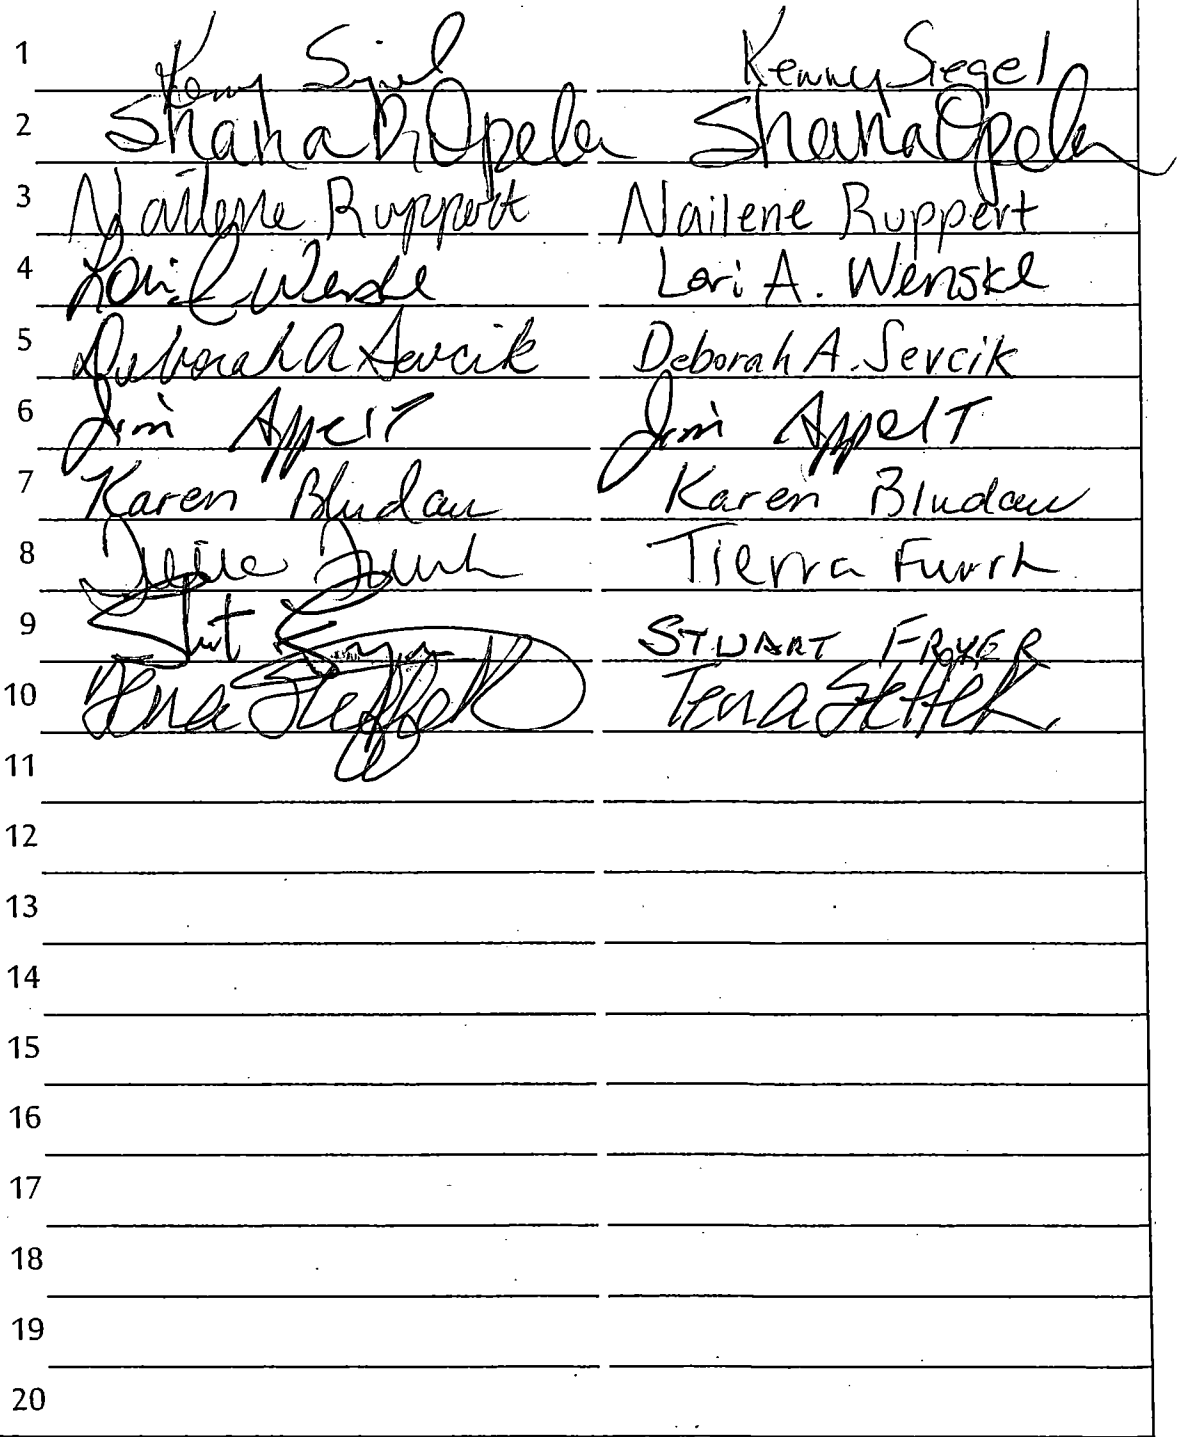 1 Kenny Siegel Kenny Siegel
2 Shana R Opela Shana Opela
3 Nailene Ruppert Nailene Ruppert
4 Lori A Wenske Lori A. Wenske
5 Deborah A Sevcik Deborah A. Sevcik
6 Jim Appelt Jim Appelt
7 Karen Bludau Karen Bludau
8 Tierra Furrh
9 STUART FRYER
10 Tena Steffek Tena Steffek
11
12
13
14
15
16
17
18
19
20